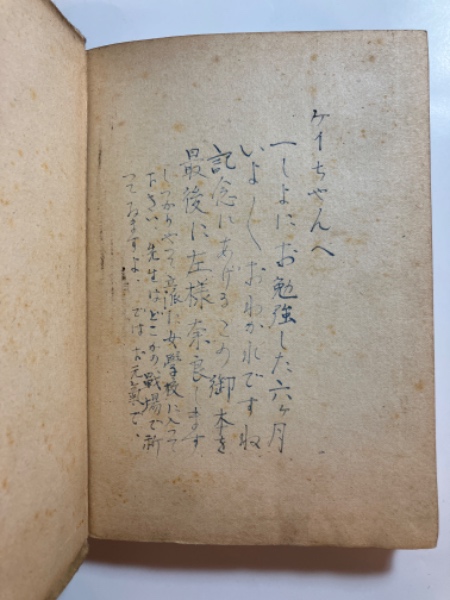 ケイちやんへ
一しよにお勉強した六ケ月
いよ〳〵おわかれですね
記念にあげるこの御本を
最後に左様奈良します
しつかりやつて立派に女學校に入つて
下さい 先生はどこかの戰場で祈
つてゐますよ、では お元氣で、